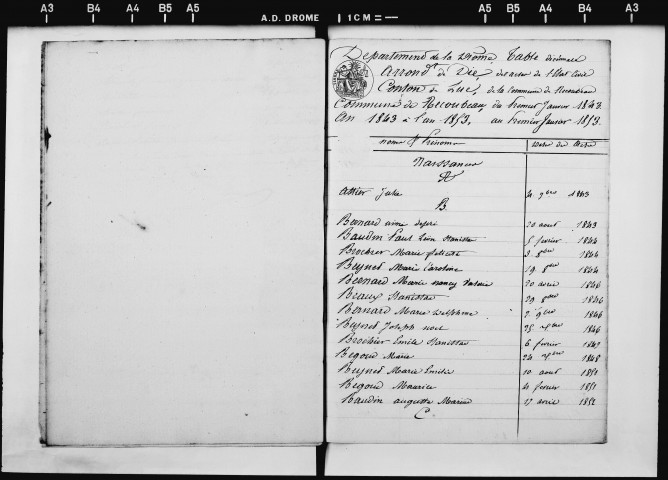 A3 B4 A4 B5 A5 A.D. DROME 1CM A5 B5 A4 B4 A3
Département de la Drôme, Table décennale
Arrond.t de Die, des actes de l'état civil
Canton de Luc, de la commune de Recoubeau
Commune de Recoubeau, du premier janvier 1843
An 1843 à l'an 1853. au premier janvier 1853.
noms & Prénoms Date des Actes
Naissances
A
Julie 4 9bre 1843
B.
Bernard désiré 20 août 1843
Baudin Paul Léon Stanislas 5 février 1844
Brochier Marie félicité 3 8bre 1844
Beynet Marie Caroline 19 8bre 1844
Bernard Marie nancy 20 avril 1846
Beaux Stanislas 29 8bre 1846
Bernard Marie Delphine 2 9bre 1846
Beynet Joseph noel 25 1846
Brochier Emile Stanislas 6 février 1847
Begoud Marie 24 1848
Beynet Marie Emilie 10 août 1851
Begoud Maurice 4 février 1851
Baudin auguste 17 avril 1852
C.